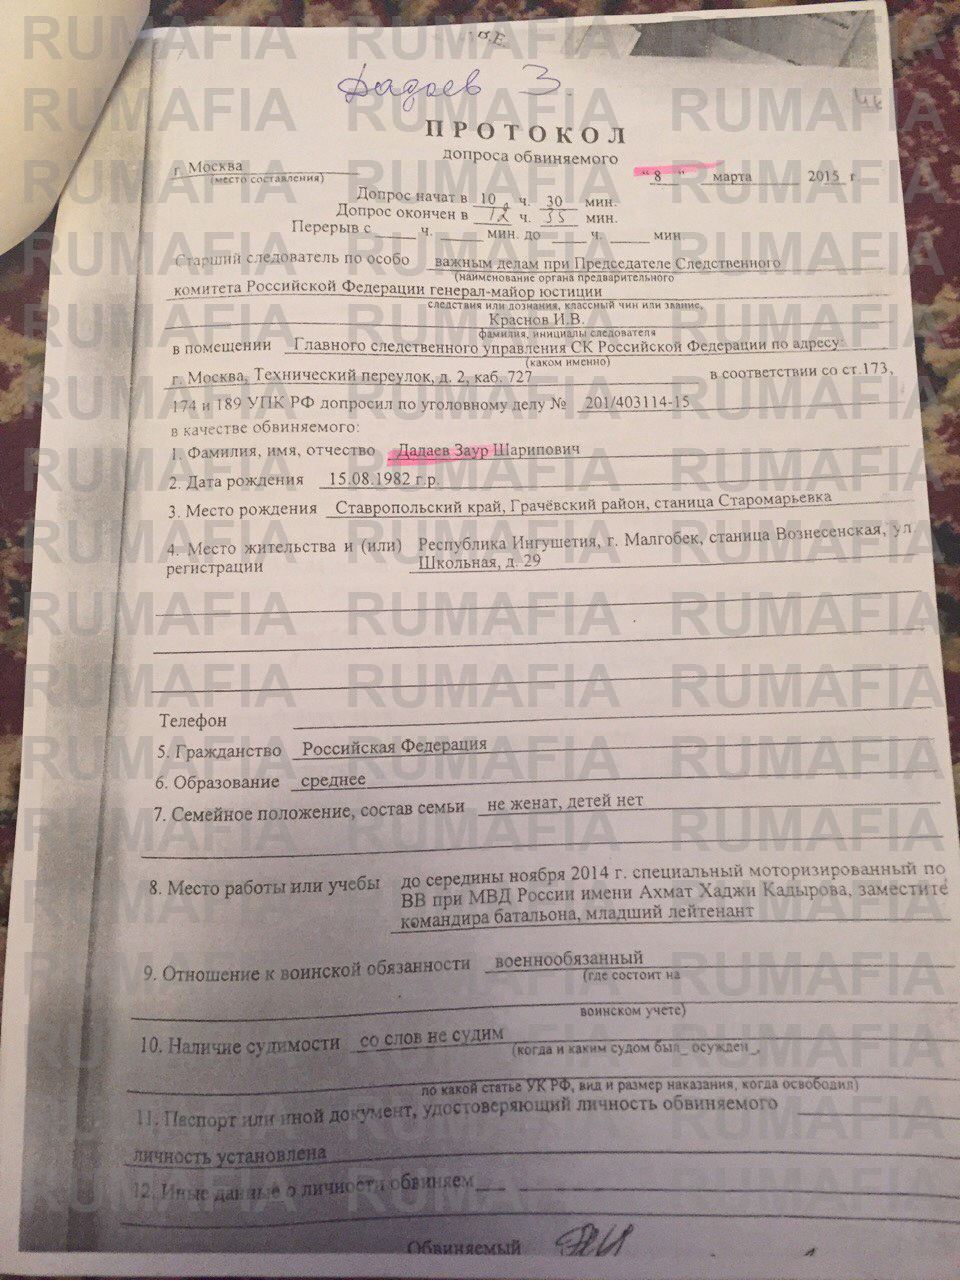 Дадаев З.
ПРОТОКОЛ
допроса обвиняемого
г Москва
(место составления)
"8" марта 2015 г.
Допрос начат в 10 ч. 30 мин.
Допрос окончен в 12 ч. 35 мин.
Перерыв с ____ ч. ____ мин. до ____ ч. ____ мин
Старший следователь по особо важным делам при Председателе Следственного
(наименование органа предварительного
комитета Российской Федерации генерал-майор юстиции
следствия или дознания, классный чин или звание,
Краснов И.В.
фамилия, инициалы следователя
в помещении Главного следственного управления СК Российской Федерации по адресу:
(каком именно)
г. Москва, Технический переулок, д. 2, каб. 727 в соответствии со ст.173,
174 и 189 УПК РФ допросил по уголовному делу № 201/403114-15
в качестве обвиняемого:
1. Фамилия, имя, отчество Дадаев Заур Шарипович
2. Дата рождения 15.08.1982 г.р.
3. Место рождения Ставропольский край, Грачёвский район, станица Старомарьевка
4. Место жительства и (или) Республика Ингушетия, г. Малгобек, станица Вознесенская, ул
регистрации Школьная, д. 29
Телефон
5. Гражданство Российская Федерация
6. Образование среднее
7. Семейное положение, состав семьи не женат, детей нет
8. Место работы или учебы до середины ноября 2014 г. специальный моторизированный по
ВВ при МВД России имени Ахмат Хаджи Кадырова, заместите
командира батальона, младший лейтенант
9. Отношение к воинской обязанности военнообязанный
(где состоит на
воинском учете)
10. Наличие судимости со слов не судим
(когда и каким судом был_ осужден_,
по какой статье УК РФ, вид и размер наказания, когда освободил)
11. Паспорт или иной документ, удостоверяющий личность обвиняемого
личность установлена
12. Иные данные о личности обвиняем___
Обвиняемый
RUMAFIA